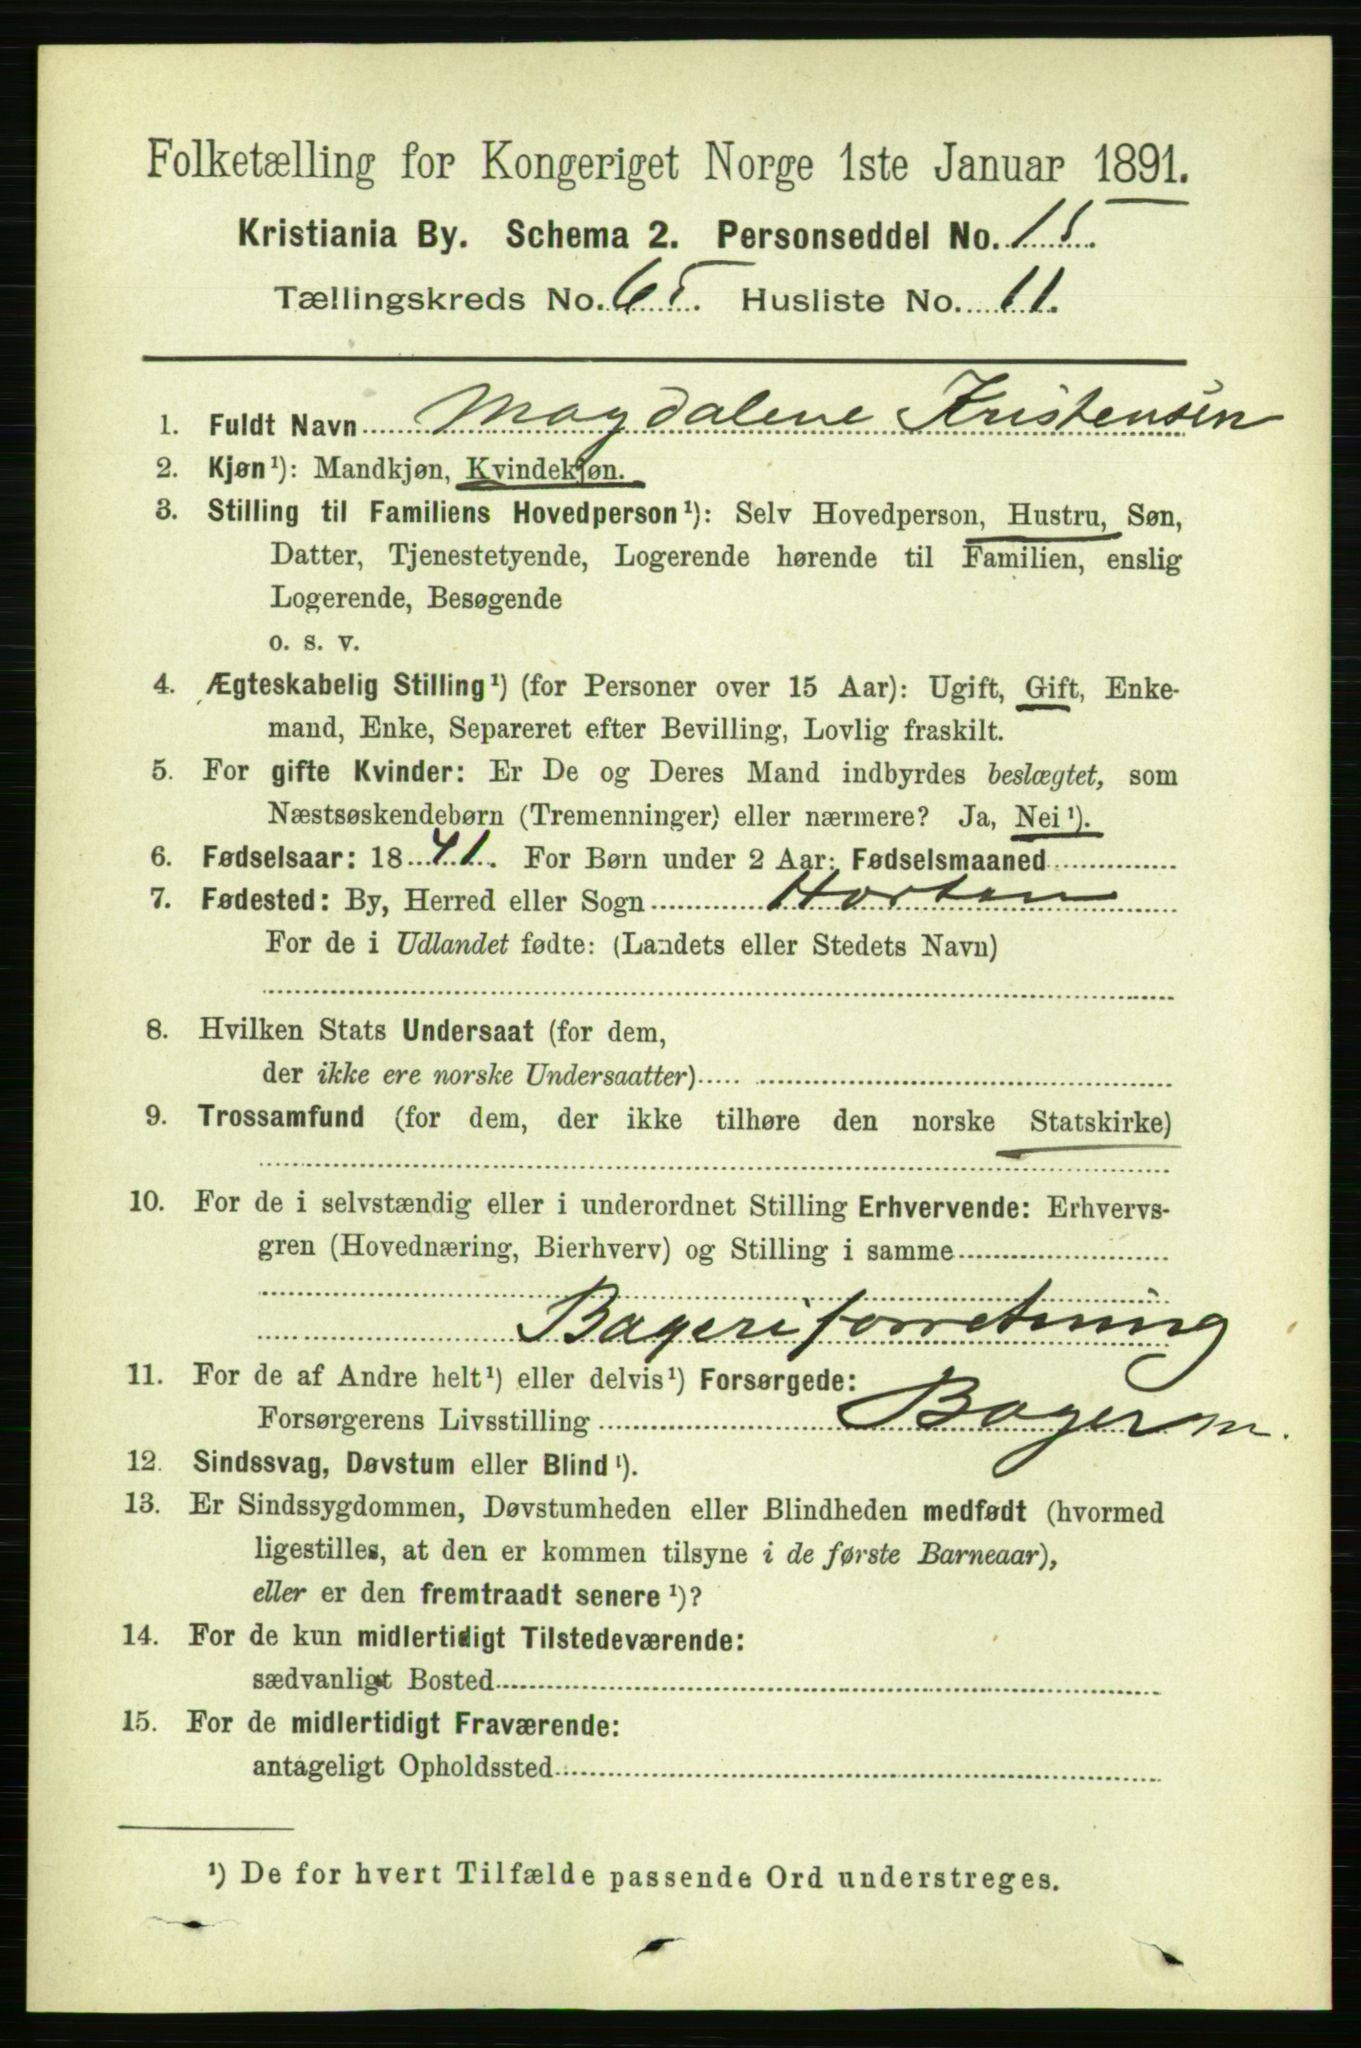 Folketælling for Kongeriget Norge 1ste Januar 1891.
Kristiania By. Schema 2. Personseddel No. 15.
Tællingskreds No. 65. Husliste No. 11.
1. Fuldt Navn Magdalene Kristensen
2. Kjøn¹): Mandkjøn, Kvindekjøn.
3. Stilling til Familiens Hovedperson¹): Selv Hovedperson, Hustru, Søn,
Datter, Tjenestetyende, Logerende hørende til Familien, enslig
Logerende, Besøgende
o. s. v.
4. Ægteskabelig Stilling¹) (for Personer over 15 Aar): Ugift, Gift, Enke-
mand, Enke, Separeret efter Bevilling, Lovlig fraskilt.
5. For gifte Kvinder: Er De og Deres Mand indbyrdes beslægtet, som
Næstsøskendebørn (Tremenninger) eller nærmere? Ja, Nei¹).
6. Fødselsaar: 1841. For Børn under 2 Aar: Fødselsmaaned
7. Fødested: By, Herred eller Sogn Horten
For de i Udlandet fødte: (Landets eller Stedets Navn)
8. Hvilken Stats Undersaat (for dem,
der ikke ere norske Undersaatter)
9. Trossamfund (for dem, der ikke tilhøre den norske Statskirke)
10. For de i selvstændig eller i underordnet Stilling Erhvervende: Erhvervs-
gren (Hovednæring, Bierhverv) og Stilling i samme
Bageriforretning
11. For de af Andre helt¹) eller delvis¹) Forsørgede:
Forsørgerens Livsstilling Bagerm.
12. Sindssvag, Døvstum eller Blind¹).
13. Er Sindssygdommen, Døvstumheden eller Blindheden medfødt (hvormed
ligestilles, at den er kommen tilsyne i de første Barneaar),
eller er den fremtraadt senere¹)?
14. For de kun midlertidigt Tilstedeværende:
sædvanligt Bosted
15. For de midlertidigt Fraværende:
antageligt Opholdssted
¹) De for hvert Tilfælde passende Ord understreges.